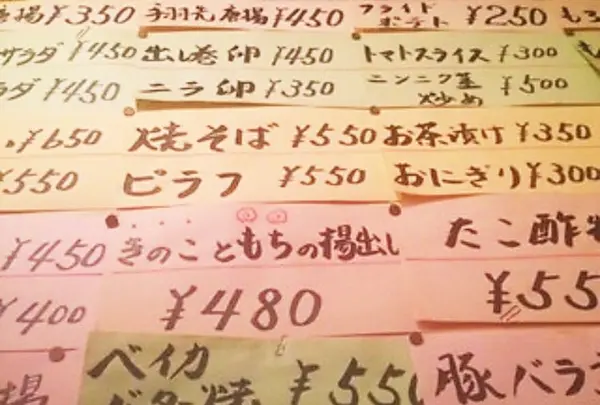 唐揚 ¥350 手羽先唐揚 ¥450 フライドポテト ¥250
サラダ ¥450 出し巻卵 ¥450 トマトスライス ¥300
ラダ ¥450 ニラ卵 ¥350 ニンニク茎炒め ¥500
¥650 焼そば ¥550 お茶漬け ¥350
¥550 ピラフ ¥550 おにぎり ¥300
¥450 きのこともちの揚出し たこ酢
¥400 ¥480 ¥55
揚 ベイカ ¥550 豚バラ
バター焼